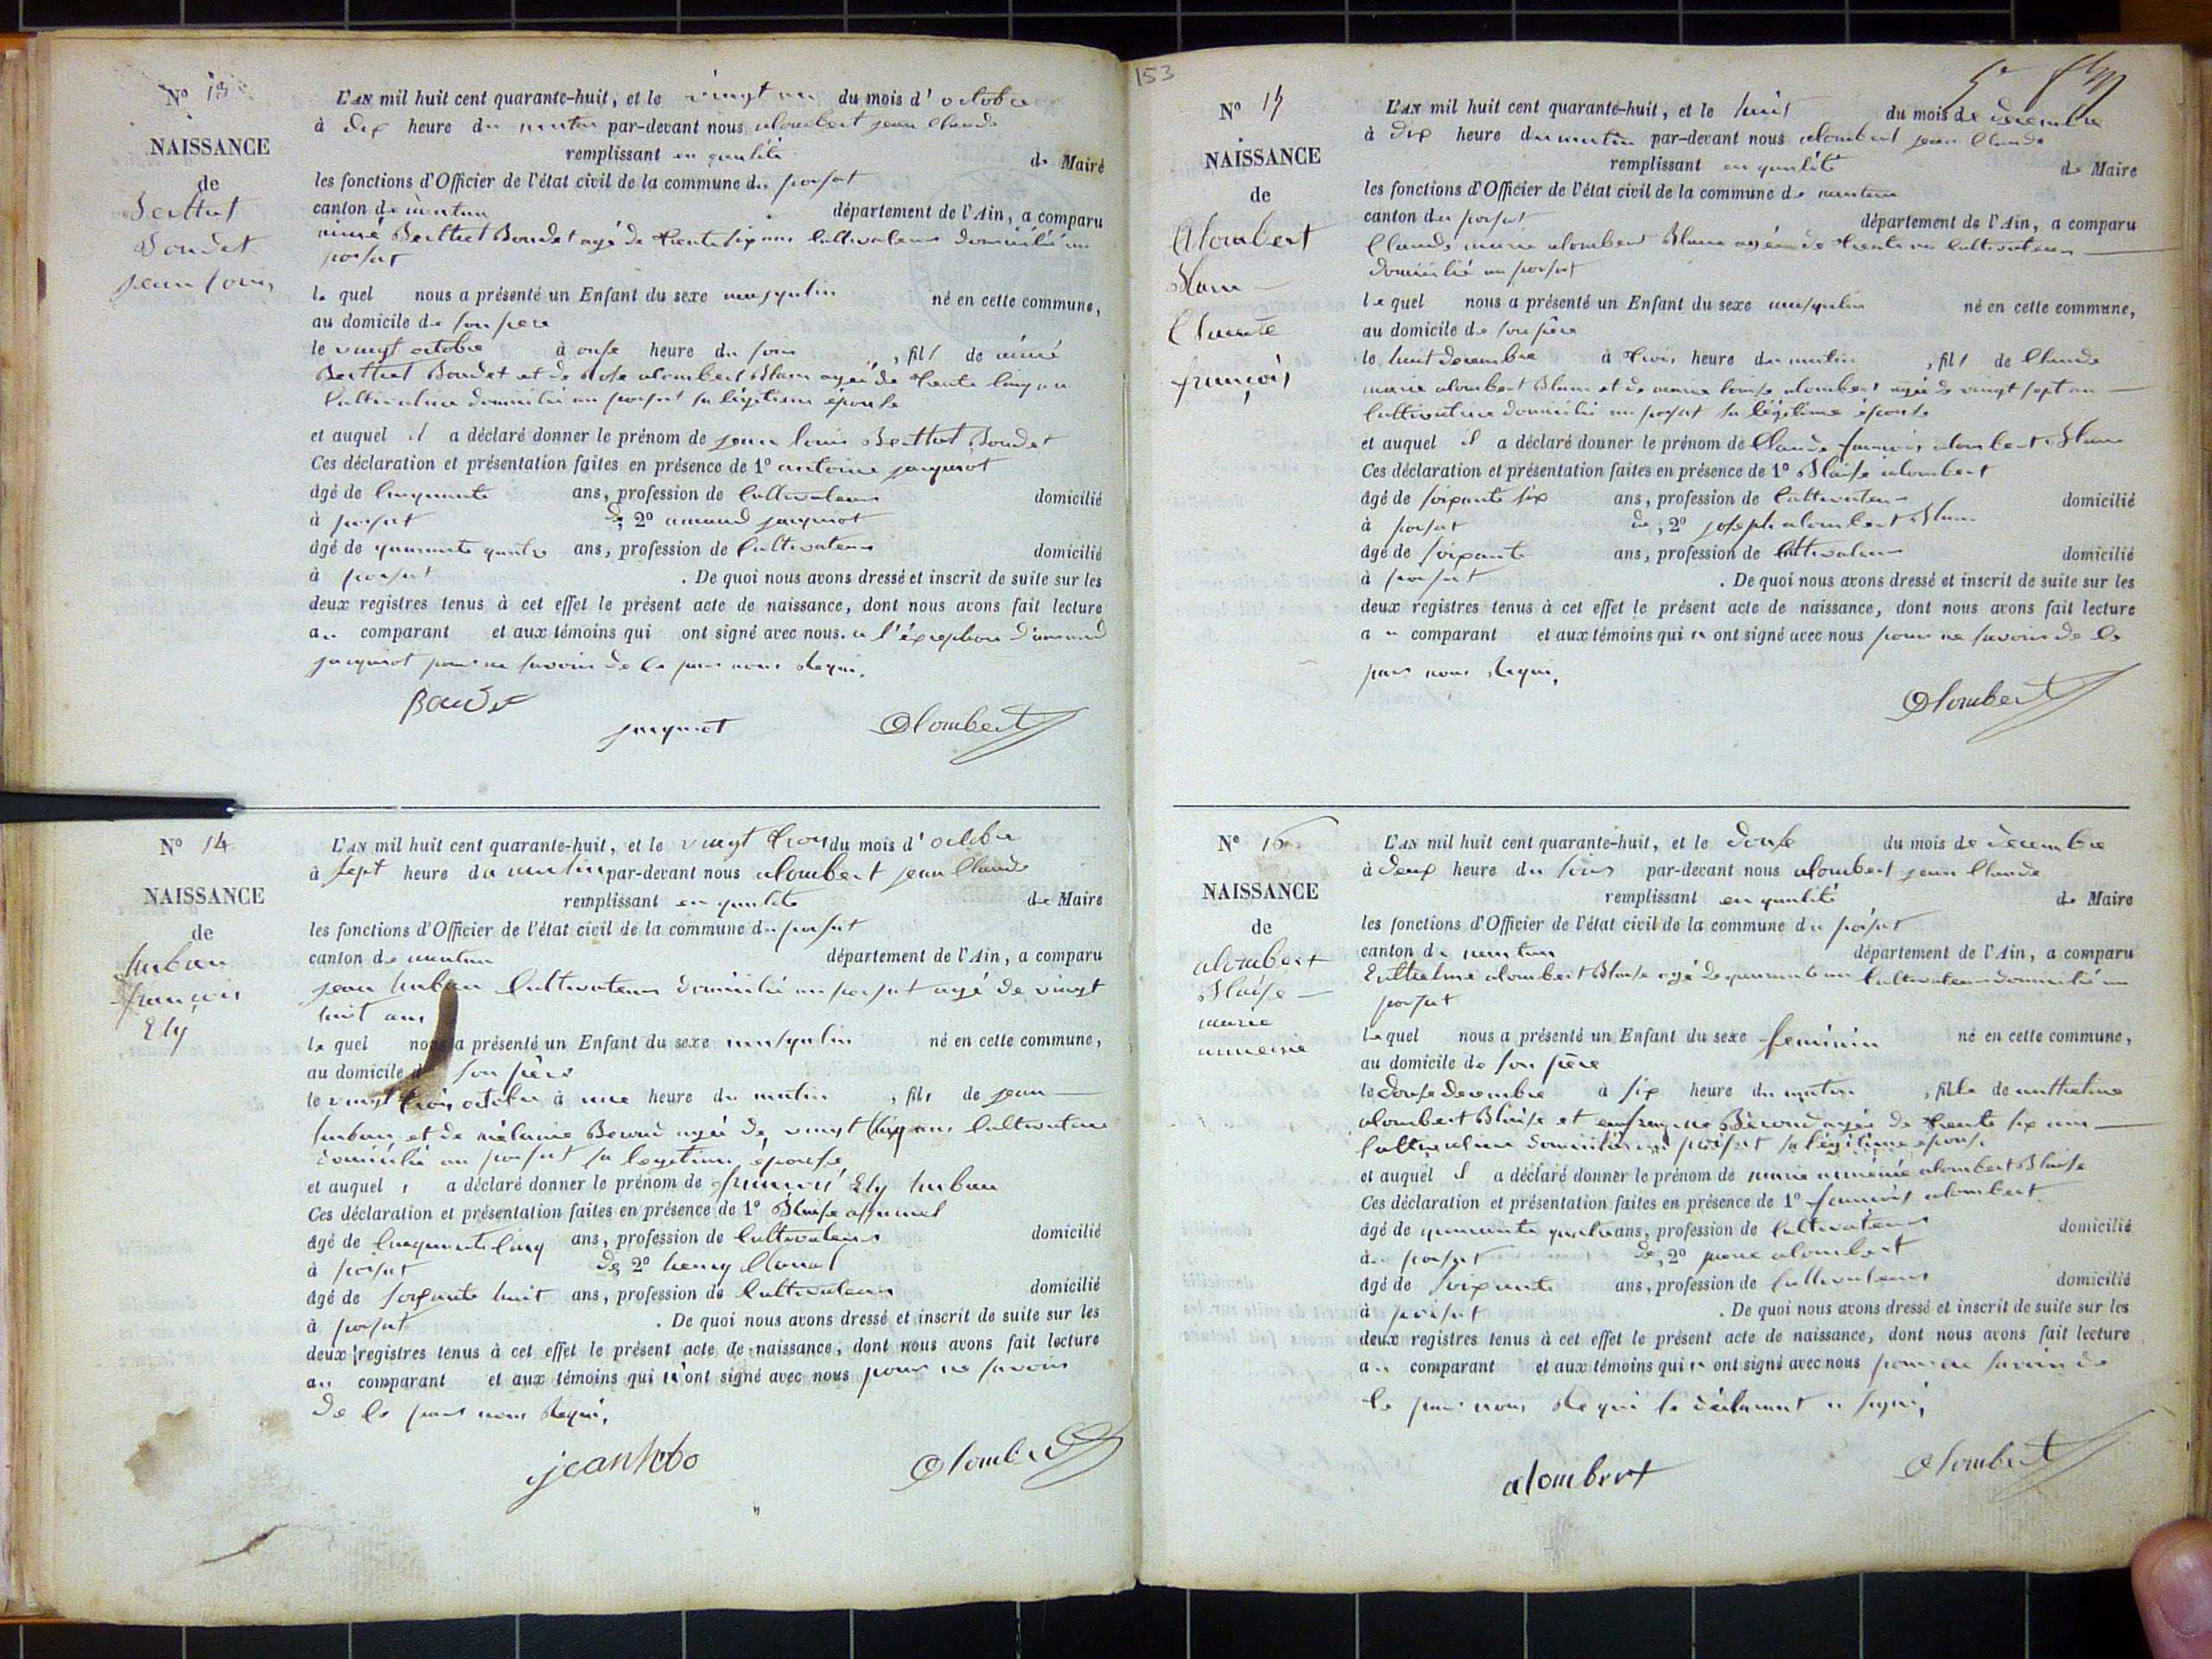 N° 13
NAISSANCE
de
Berthet
Boudet
jean louis
L'AN mil huit cent quarante-huit, et le vingt un du mois d'octobre
à dix heure du matin par-devant nous alombert jean Claude
remplissant en qualité de Maire
les fonctions d'Officier de l'état civil de la commune du poisat
canton de nantua département de l'Ain, a comparu
aimé Berthet Boudet agé de trente six ans Cultivateur domicilié au
poisat
le quel nous a présenté un Enfant du sexe masqulin né en cette commune,
au domicile de son père
le vingt octobre à onse heure du soir, fils de aimé
Berthet Boudet et de Rose alombert Blanc agée de trente cinq an
Cultivatrice domicilié au poisat sa légitime épouse
et auquel il a déclaré donner le prénom de jean louis Berthet Boudet
Ces déclaration et présentation faites en présence de 1° antoine jacquiot
âgé de Cinquante ans, profession de Cultivateur domicilié
à poisat de, 2° amand jacquiot
âgé de quarante quatre ans, profession de Cultivateur domicilié
à poisat . De quoi nous avons dressé et inscrit de suite sur les
deux registres tenus à cet effet le présent acte de naissance, dont nous avons fait lecture
au comparant et aux témoins qui ont signé avec nous. a l'éxception d'amand
jacquiot pour ne savoir de ce par nous Requi.
Boudet
jacquiot
Alombert
N° 14
NAISSANCE
de
françois
Ely
L'AN mil huit cent quarante-huit, et le vingt trois du mois d'octobre
à sept heure du matin par-devant nous alombert jean Claude
remplissant en qualité de Maire
les fonctions d'Officier de l'état civil de la commune du poisat
canton de nantua département de l'Ain, a comparu
jean Cultivateur domicilié au poisat agé de vingt
huit ans
le quel nous a présenté un Enfant du sexe masqulin né en cette commune,
au domicile de son père
le vingt trois octobre à une heure du matin, fils de jean
et de mélanie agée de vingt cinq ans Cultivatrice
domicilié au poisat sa legitime épouse
et auquel a déclaré donner le prénom de françois Ely
Ces déclaration et présentation faites en présence de 1° Blaise
âgé de Cinquante cinq ans, profession de Cultivateur domicilié
à poisat de, 2° henry
âgé de soixante huit ans, profession de Cultivateur domicilié
à poisat . De quoi nous avons dressé et inscrit de suite sur les
deux registres tenus à cet effet le présent acte de naissance, dont nous avons fait lecture
au comparant et aux témoins qui n'ont signé avec nous pour ne savoir
de ce par nous Requi,
Alombert
153
N° 15
NAISSANCE
de
Alombert
Blanc
Claude
françois
L'AN mil huit cent quarante-huit, et le huit du mois de decembre
à dix heure du matin par-devant nous alombert jean Claude
remplissant en qualité de Maire
les fonctions d'Officier de l'état civil de la commune de nantua
canton du poisat département de l'Ain, a comparu
Claude marie alombert Blanc agée de trente un Cultivateur
domicilié au poisat
le quel nous a présenté un Enfant du sexe masqulin né en cette commune,
au domicile de son père
le huit decembre à trois heure du matin, fils de Claude
marie alombert Blanc et de marie louise alombert agée de vingt sept an
Cultivatrice domicilié au poisat sa légitime épouse
et auquel il a déclaré donner le prénom de Claude françois alombert Blanc
Ces déclaration et présentation faites en présence de 1° Blaise alombert
âgé de soixante six ans, profession de Cultivateur domicilié
à poisat de, 2° joseph alombert Blanc
âgé de soixante ans, profession de Cultivateur domicilié
à poisat . De quoi nous avons dressé et inscrit de suite sur les
deux registres tenus à cet effet le présent acte de naissance, dont nous avons fait lecture
au comparant et aux témoins qui n ont signé avec nous pour ne savoir de ce
par nous Requi,
Alombert
N° 16
NAISSANCE
de
alombert
Blaise
marie
L'AN mil huit cent quarante-huit, et le douse du mois de decembre
à deux heure du soir par-devant nous alombert jean Claude
remplissant en qualité de Maire
les fonctions d'Officier de l'état civil de la commune du poisat
canton de nantua département de l'Ain, a comparu
alombert Blaise agé de quarante un Cultivateur domicilié au
poisat
le quel nous a présenté un Enfant du sexe feminin né en cette commune,
au domicile de son père
le douse decembre à six heure du matin, fille de
alombert Blaise et agée de trente six ans
Cultivatrice domicilié au poisat sa légitime épouse
et auquel il a déclaré donner le prénom de marie alombert Blaise
Ces déclaration et présentation faites en présence de 1° françois alombert
âgé de quarante quatre ans, profession de Cultivateur domicilié
au poisat de, 2° alombert
âgé de soixante ans, profession de Cultivateur domicilié
à poisat . De quoi nous avons dressé et inscrit de suite sur les
deux registres tenus à cet effet le présent acte de naissance, dont nous avons fait lecture
au comparant et aux témoins qui n ont signé avec nous pour ne savoir de
ce par nous Requi le déclarant a signé,
alombert
Alombert